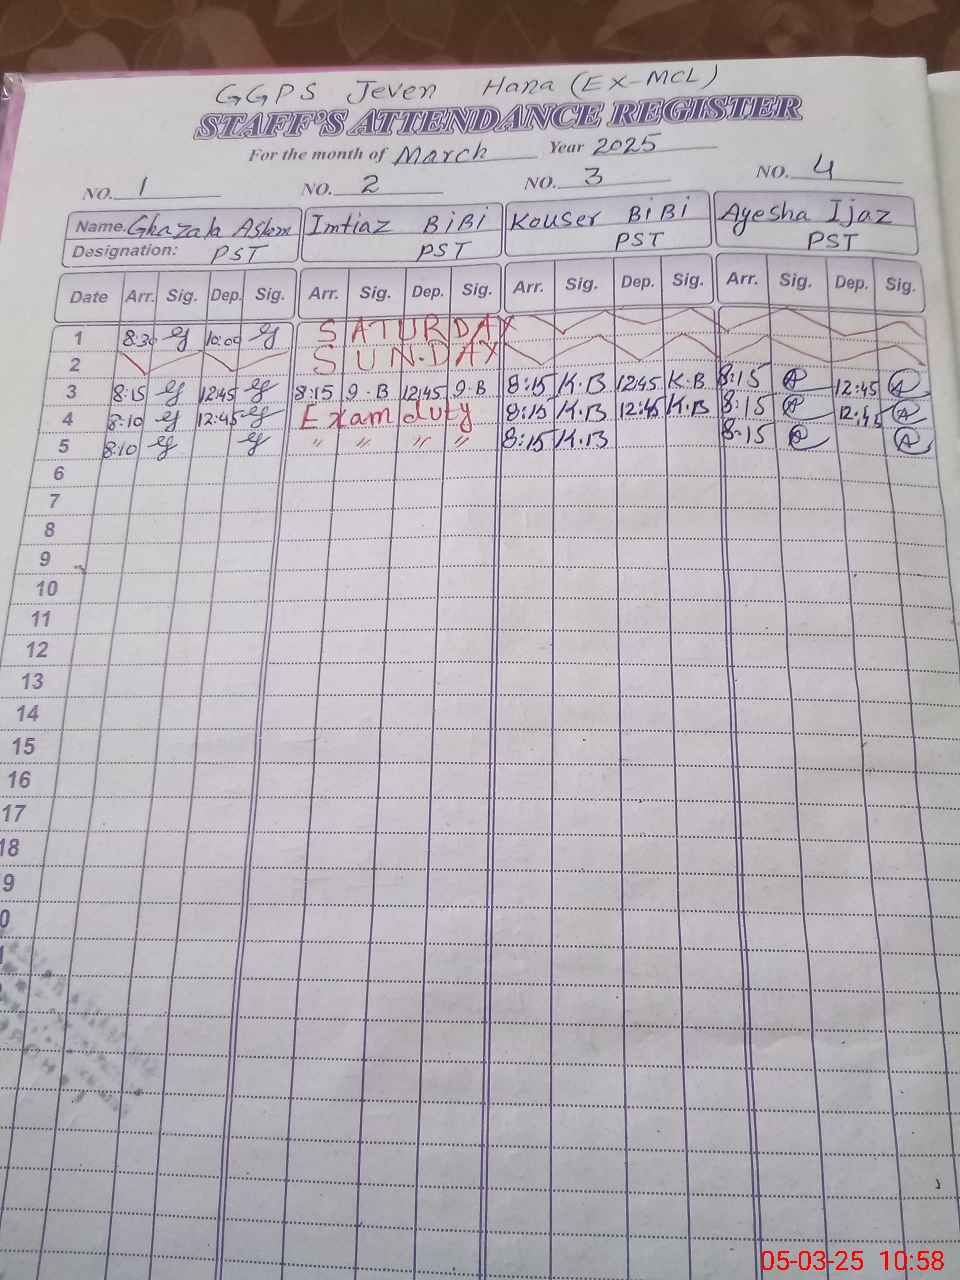 GGPS Jeven Hana (EX-MCL)
STAFF'S ATTENDANCE REGISTER
For the month of March Year 2025
NO. 1 NO. 2 NO. 3 NO. 4
Name. Ghazala Aslam Imtiaz BiBi Kouser BiBi Ayesha Ijaz
Designation: PST PST PST PST
Date Arr. Sig. Dep. Sig. Arr. Sig. Dep. Sig. Arr. Sig. Dep. Sig. Arr. Sig. Dep. Sig.
1 8:30 10:00 SATURDAY
2 SUN.DAY
3 8:15 12:45 8:15 I.B 12:45 I.B 8:15 K.B 12:45 K.B 8:15 12:45
4 8:10 12:45 Exam duty 8:15 K.B 12:45 K.B 8:15 12:45
5 8:10 " " " " 8:15 K.B 8:15
6
7
8
9
10
11
12
13
14
15
16
17
18
9
0
05-03-25 10:58